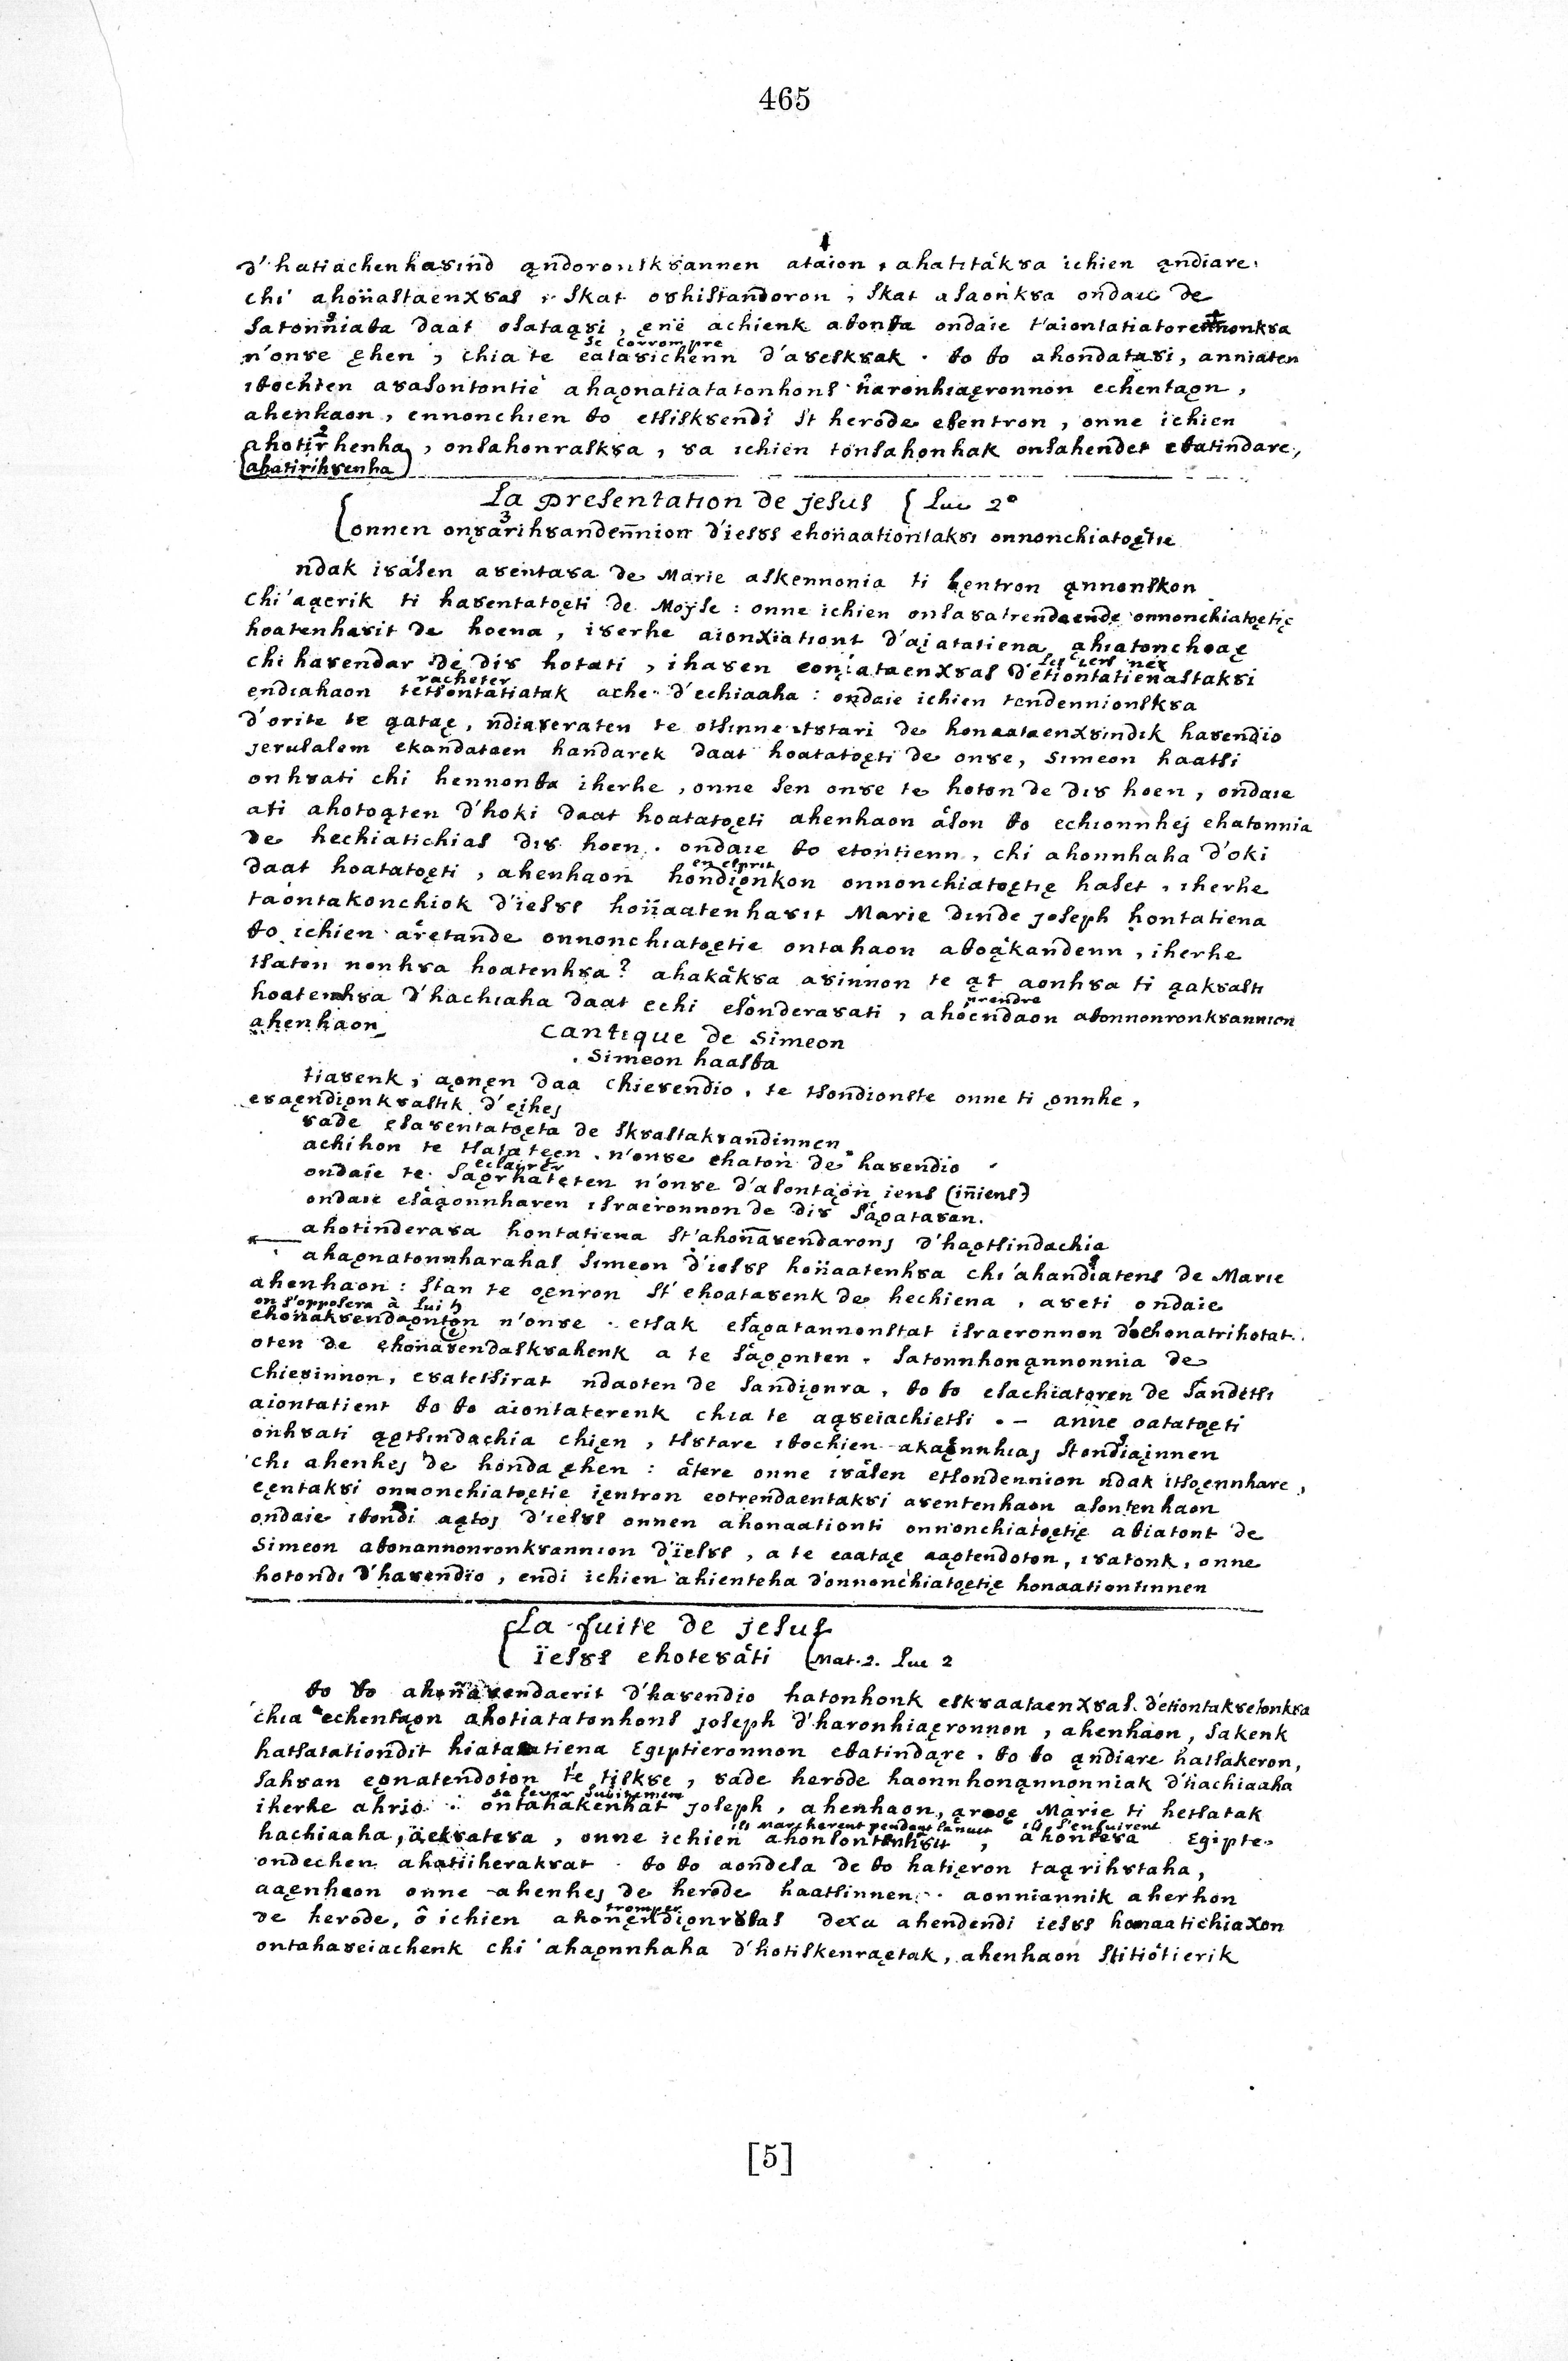 465
d'hatiachenhaȣind ąndoronskȣannen ataion, ahatitakȣa ichien ąndiare,
chi ahoñastaenxȣas, skat oȣhistandoron, skat asaonkȣa ondaie de
satonniaθa daat osataąȣi, ęne achienk aθonθa ondaie t'aiontatiatorennonkȣa
se corrompre
n'onȣe ęhen, chia te eataȣichenn d'aȣeskȣak. θo θo ahondataȣi, anniaten
iθochien aȣasontontie ahaǫnatiatatonhons haronhiaęronnon echentaǫn,
ahenhaon, ennonchien θo etsiskȣendi st herode esentron, onne ichien
ahotirhenha, onsahonraskȣa, ȣa ichien tonsahonhak onsahendet eθatindare,
(aharihȣenha)
La presentation de jesus { Luc 2°
onnen onȣarihȣandennion d'iesȣs ehoñaationtakȣi onnonchiatoętie
ndak iȣasen aȣentaȣa de Marie askennonia ti hentron ąnnonskon
chi aąerik ti haȣentatoęti de Moyse : onne ichien onsaȣatrendaende onnonchiatoętię
hoatenhaȣit de hoena, iȣerhe aionxiationt d'aiatatiena ahiatonchoaę
les 1ers nés
chi haȣendar de diȣ hotati, ihaȣen eoniataenxȣas d'etiontatienastakȣi
racheter
endiahaon tetsontatiatak ache d'echiaaha : ondaie ichien tendennionskȣa
d'orite te ąataę, ndiaȣeraten te otsinne itȣtari de honaataenxȣindik haȣendio
jerusalem ekandataen handarek daat hoatatoęti de onȣe, simeon haatsi
onhȣati chi hennonθa iherhe, onne sen onȣe te hoton de diȣ hoen, ondaie
ati ahotoąten d'hoki daat hoatatoęti ahenhaon ason θo echionnhej ehatonnia
de hechiatichias diȣ hoen. ondaie θo etontienn, chi ahonnhaha d'oki
en esprit
daat hoatatoęti, ahenhaon hondiǫnkon onnonchiatoętię haset, iherhe
taontakonchiok d'iesȣs hoñaatenhaȣit Marie dinde joseph hontatiena
θo ichien aretande onnonchiatoętie ontahaon aθoąkandenn, iherhe
tsaton nonhȣa hoatenhȣa ? ahakakȣa aȣinnon te ąt aonhȣa ti ąakȣasti
prendre
hoatenhȣa d'hachiaha daat echi esonderaȣati, ahoendaon aθonnonronkȣannion
ahenhaon
cantique de simeon
simeon haasθa
tiaȣenk, aǫnęn daa chieȣendio, te tsondionste onne ti ǫnnhe,
eȣaęndiǫnkȣastik d'ęihej
ȣade esaȣentatoęta de skȣastakȣandinnen
achihon te tsatateen. n'onȣe ehaton de haȣendio
eclairer
ondaie te saǫrhateten n'onȣe d'asontaǫn iens (iniens)
ondaie esaąonnharen israeronnon de diȣ saǫataȣan.
ahotinderaȣa hontatiena st'ahonaȣendaronj d'haǫtsindachia
ahaǫnatonnharahas simeon d'iesȣs hoñaatenhȣa chi ahandiatens de Marie
ahenhaon : stan te ǫęnron st'ehoataȣenk de hechiena, aȣeti ondaie
on s'opposera à lui
ehoñakȣendaǫnton n'onȣe. etsak esaǫatannonstat israeronnon d'ehonatrihotat
oten de ęhonaȣendaskȣahenk a te saǫonten. satonnhonąnnonnia de
chieȣinnon, eȣatetsirat ndaoten de sandiǫnra, θo θo esachiatǫren de sandetsi
aiontatient θo θo aiontaterenk chia te aąȣeiachietsi. – anne oatatoęti
onhȣati ąǫtsindachia chięn, tsȣtare iθochien akaęnnhiaj stondiaįnnen
chi ahenhej de honda ęhen : atere onne iȣasen etsondennion ndak itsoęnnhare,
eęntakȣi onnonchiatoętie įentron eotrendaentakȣi aȣentenhaon asontenhaon
ondaie iθondi aątoj d'iesȣs onnen ahonaationti onnonchiatoętię aθiatont de
simeon aθonannonronkȣannion d'ïesȣs, a te eaataę aaǫtendoton, iȣatonk, onne
hotondi d'haȣendio, endi ichien ahienteha d'onnonchiatoętię honaationtinnen
La fuite de jesus
ïesȣs ehoteȣati { Mat. 2. Luc 2
θo θo ahoñaȣendaerit d'haȣendio hatonhonk eskȣaataenxȣas. d'etiontakȣetonkȣa
chia echentaǫn ahotiatatonhons joseph d'haronhiaęronnon, ahenhaon, sakenk
hatsatationdit hiatatiena Egiptieronnon eθatindąre. θo θo ąndiare hatsakeron,
sahȣan eǫnatendoton te tiskȣe, ȣade herode haonnhonąnnonniak d'hachiaaha
se lever subitement
iherhe ahrio : ontahakenhat joseph, ahenhaon, Marie ti hetsatak
ils marcherent pendant la nuit ils s'enfuirent
hachiaaha, aekȣateȣa, onne ichien ahonsontenhȣit, ahonteȣa Egipte
ondechen ahatiiherakȣat. θo θo aondesa de θo hatięron taąrihȣtaha,
aaęnhaon onne ahenhej de herode haatsinnen. aonniannik aherhon
tromper
de herode, ô ichien ahonęndiǫnrȣtas dexa ahendendi iesȣs honaatichiaxon
ontahaȣeiachenk chi ahaǫnnhaha d'hotiskenraętak, ahenhaon stitiotierik
[5]